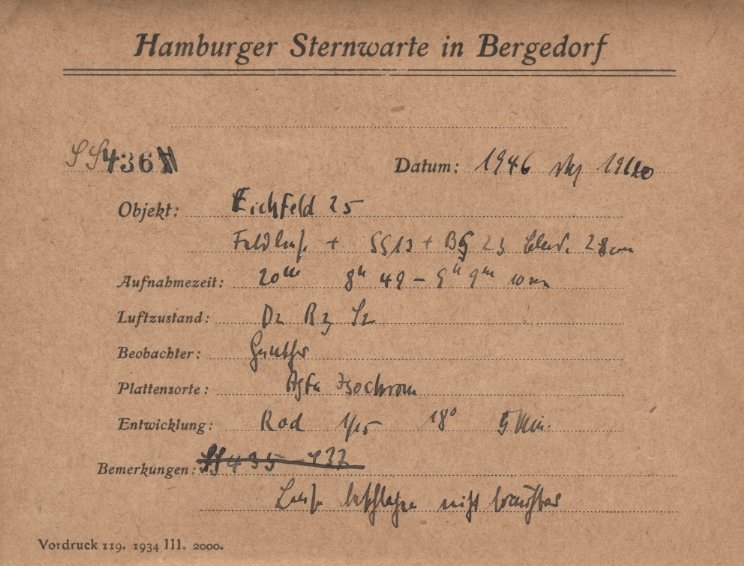 Hamburger Sternwarte in Bergedorf
SS4361
Datum: 1946
Objekt: Eichfeld 25
Feldlinse + SS13 + BG 23 28 cm
Aufnahmezeit: 20m 8h 49 – 9h 9m
Luftzustand: D2 R3 S2
Beobachter: Günther
Plattensorte: Agfa Isochrom
Entwicklung: Rod 1/15 18° 5 Min.
Bemerkungen: SS 435 + 37
Linse beschlagen nicht brauchbar
Vordruck 119. 1934 III. 2000.